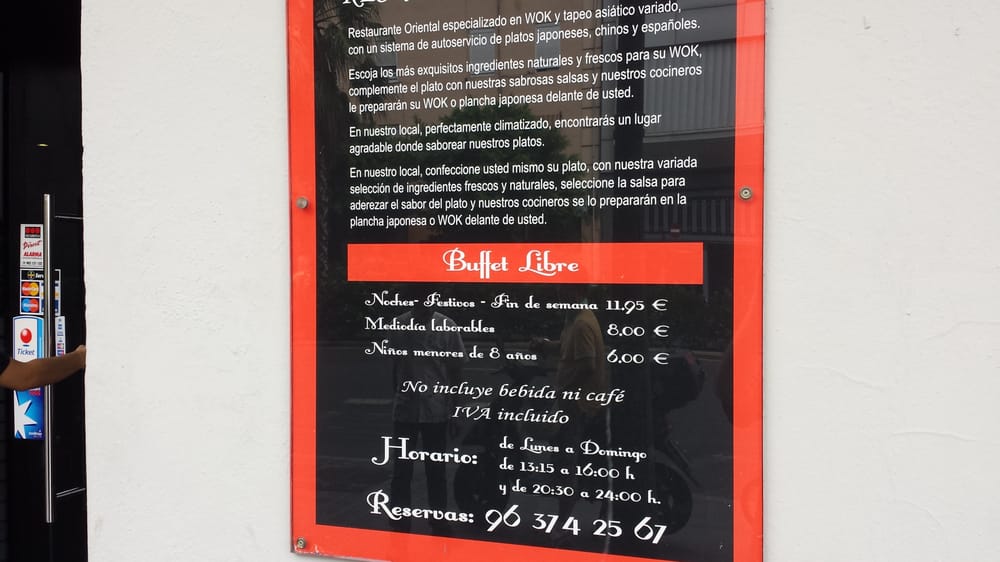 Restaurante Oriental especializado en WOK y tapeo asiático variado,
con un sistema de autoservicio de platos japoneses, chinos y españoles.
Escoja los más exquisitos ingredientes naturales y frescos para su WOK,
complemente el plato con nuestras sabrosas salsas y nuestros cocineros
le prepararán su WOK o plancha japonesa delante de usted.
En nuestro local, perfectamente climatizado, encontrarás un lugar
agradable donde saborear nuestros platos.
En nuestro local, confeccione usted mismo su plato, con nuestra variada
selección de ingredientes frescos y naturales, seleccione la salsa para
aderezar el sabor del plato y nuestros cocineros se lo prepararán en la
plancha japonesa o WOK delante de usted.
Buffet Libre
Noches- Festivos - Fin de semana 11,95 €
Mediodía laborables 8,00 €
Niños menores de 8 años 6,00 €
No incluye bebida ni café
IVA incluido
Horario: de Lunes a Domingo
de 13:15 a 16:00 h
y de 20:30 a 24:00 h.
Reservas: 96 374 25 67
Direct
ALARMA
MasterCard
Ticket